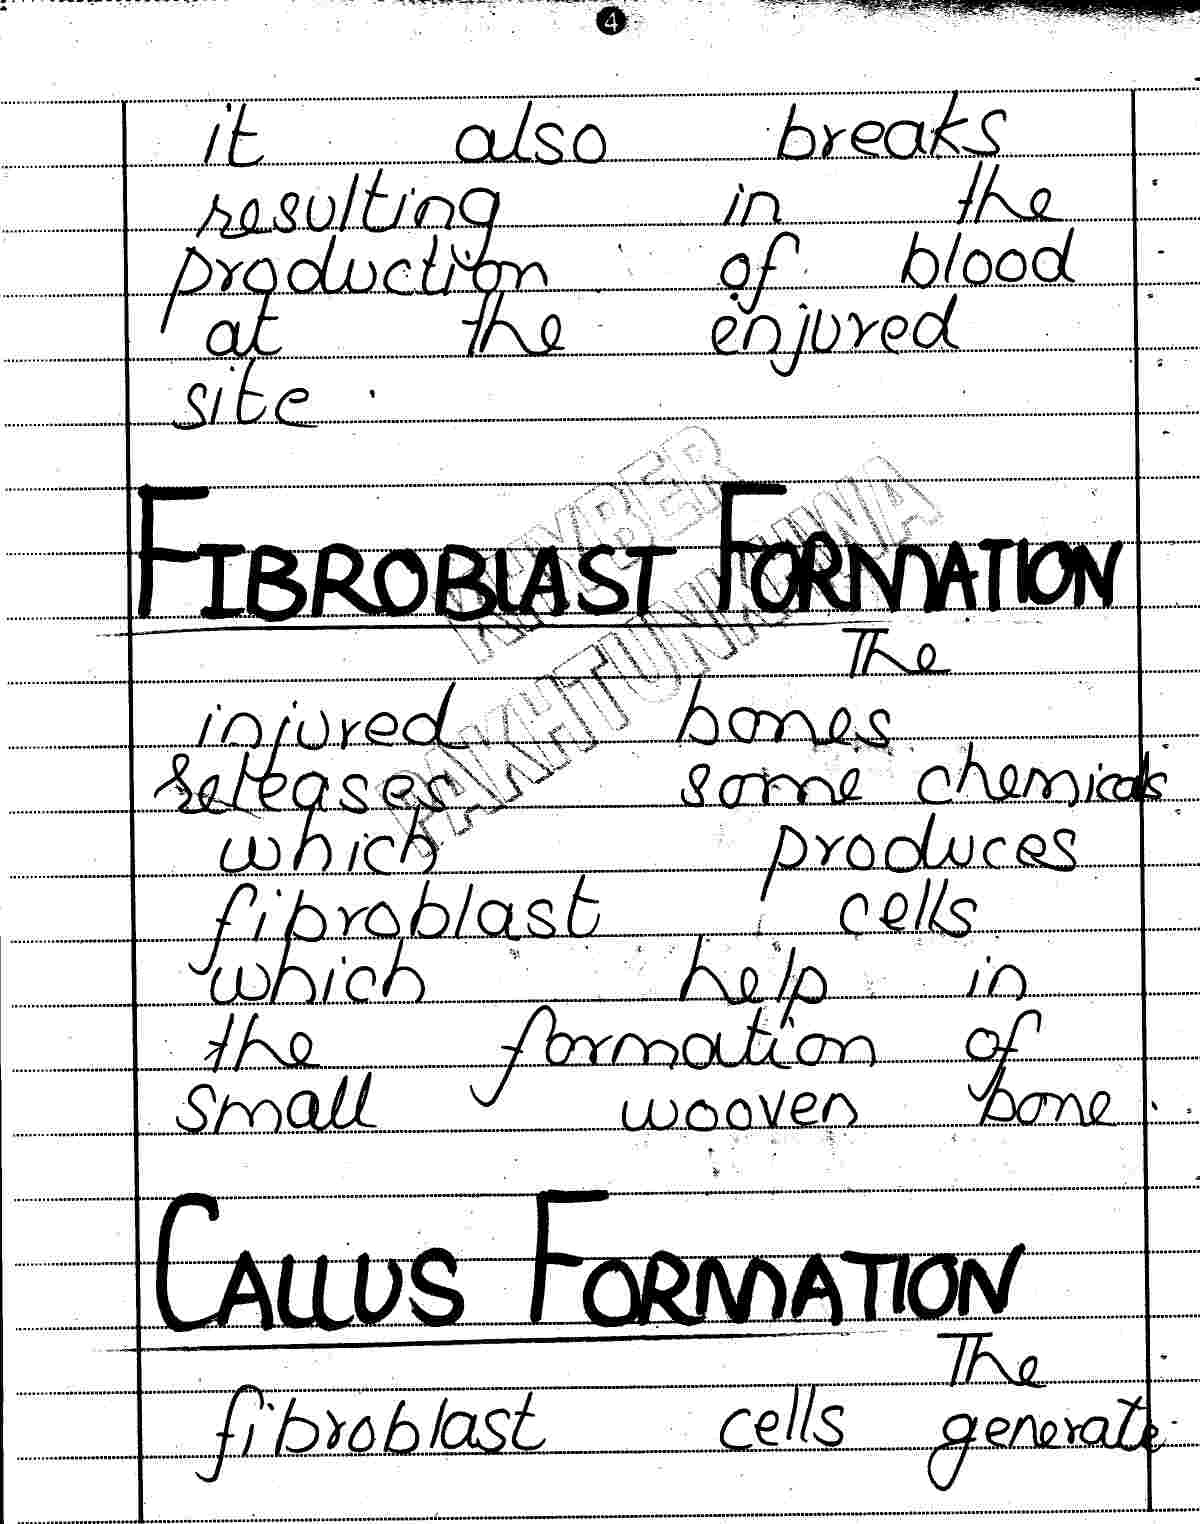 4
it also breaks
resulting in the
production of blood
at the enjured
site.
FIBROBLAST FORMATION
The
injured bones
releases some chemicals
which produces
fibroblast cells
which help in
the formation of
small wooven bone.
CALLUS FORMATION
The
fibroblast cells generate
KHYBER
PAKHTUNKHWA